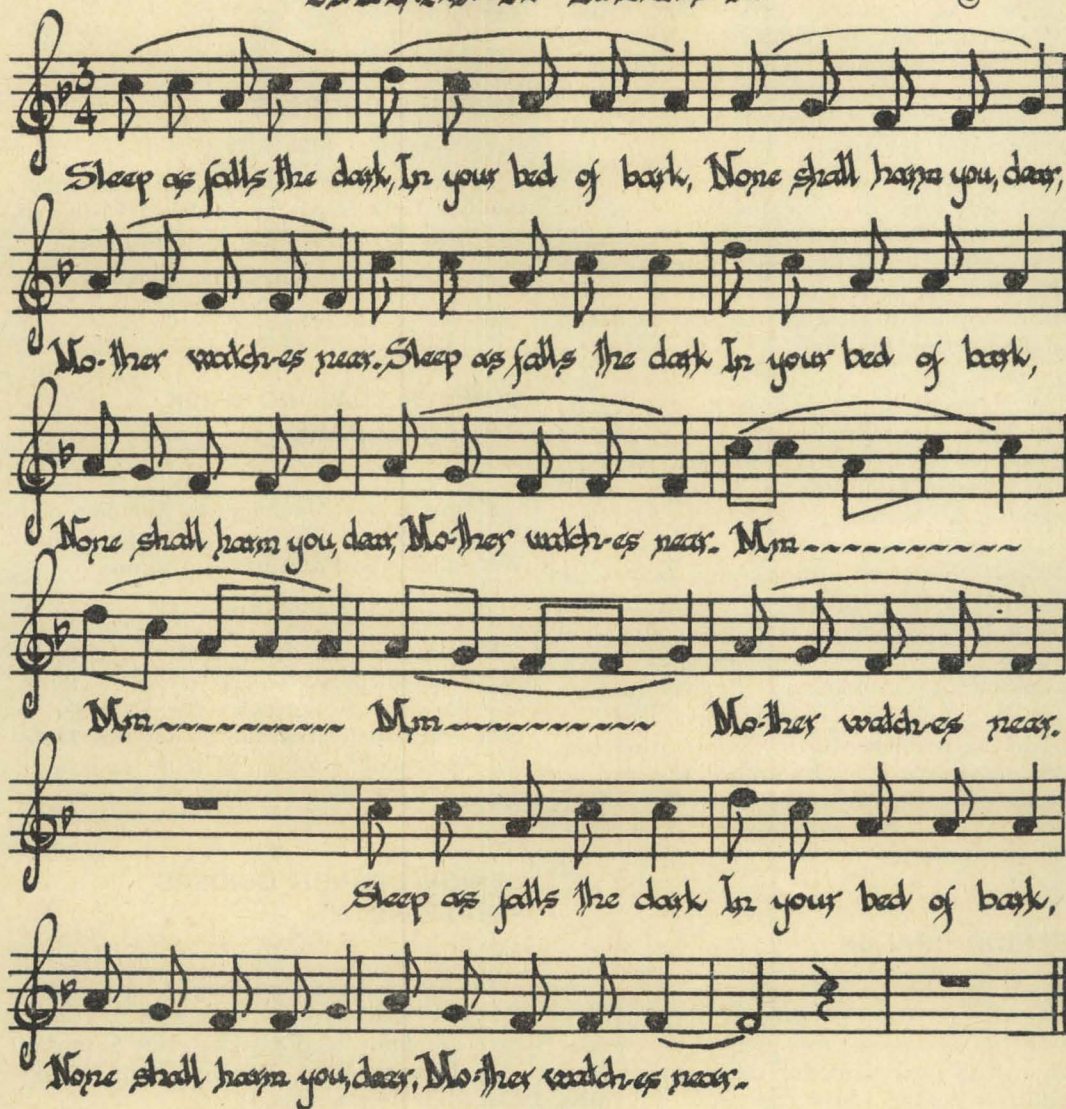 3
4
Sleep as falls the dark, In your bed of bark, None shall harm you, dear,
Mo-ther watch-es near. Sleep as falls the dark In your bed of bark,
None shall harm you, dear, Mo-ther watch-es near. Mm~~~~~~~~~~
Mm~~~~~~~~~~ Mm~~~~~~~~~~ Mo-ther watch-es near.
Sleep as falls the dark In your bed of bark,
None shall harm you, dear, Mo-ther watch-es near.